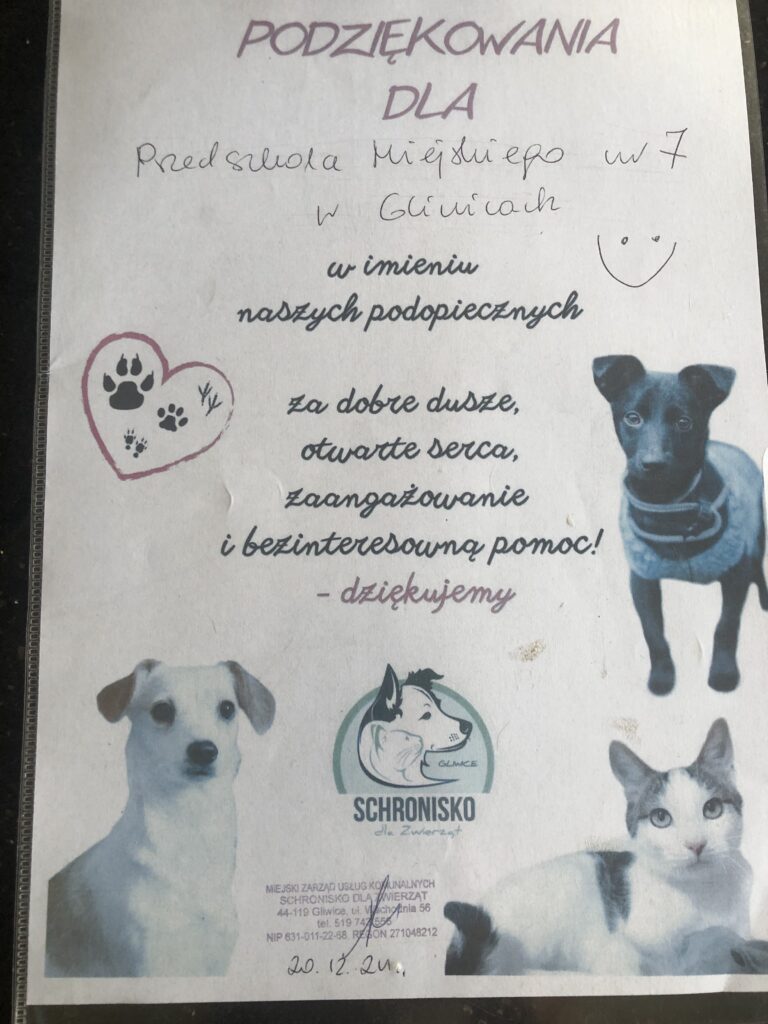 PODZIĘKOWANIA
DLA
Przedszkola Miejskiego nr 7
w Gliwicach
w imieniu
naszych podopiecznych
za dobre dusze,
otwarte serca,
zaangażowanie
i bezinteresowną pomoc!
- dziękujemy
GLIWICE
SCHRONISKO
dla Zwierząt
MIEJSKI ZARZĄD USŁUG KOMUNALNYCH
SCHRONISKO DLA ZWIERZĄT
44-119 Gliwice, ul. Wschodnia 56
tel. 519 747 556
NIP 631-011-22-68, REGON 271048212
20.12.24r.